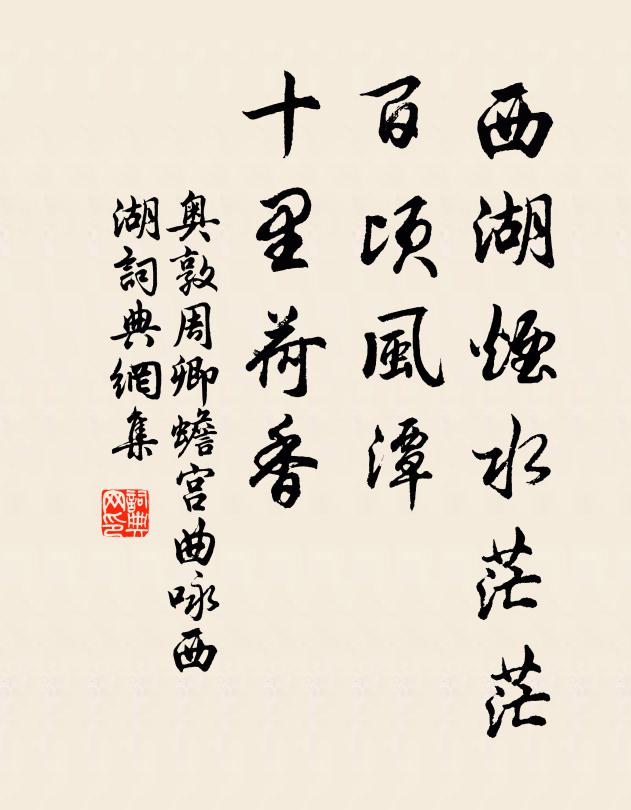 西湖煙水茫茫
百頃風潭
十里荷香
奥敦周卿蟾宫曲咏西
湖詞典網集
詞典
网印